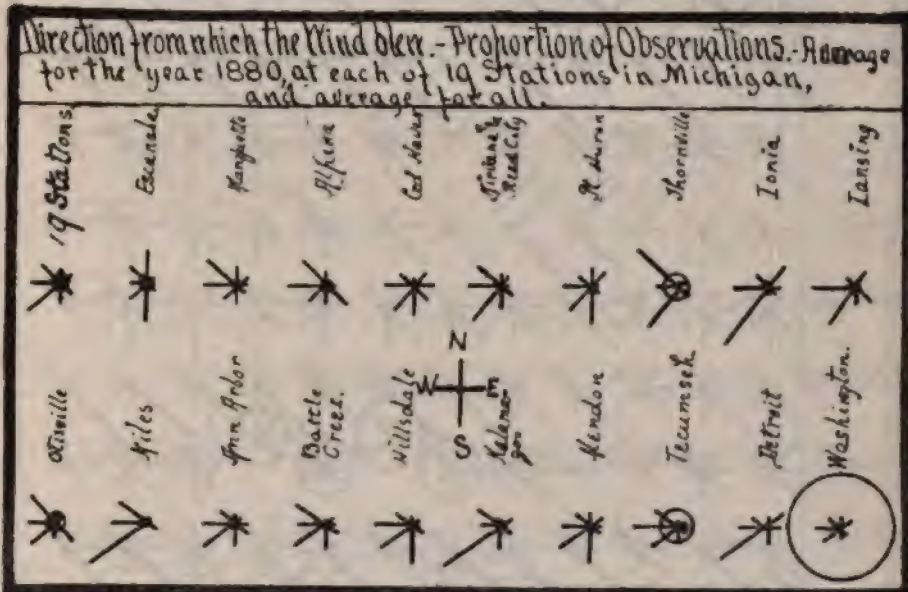 Direction from which the Wind blew.-Proportion of Observations.-Average
for the year 1880, at each of 19 Stations in Michigan,
and average for all.
19 Stations
Escanaba
Marquette
Alpena
Reed City
Pt Huron
Thornville
Ionia
Lansing
N
W
E
S
Otisville
Niles
Ann Arbor
Battle
Creek.
Hillsdale
Kalama-
zoo
Mendon
Tecumseh
Detroit
Washington.